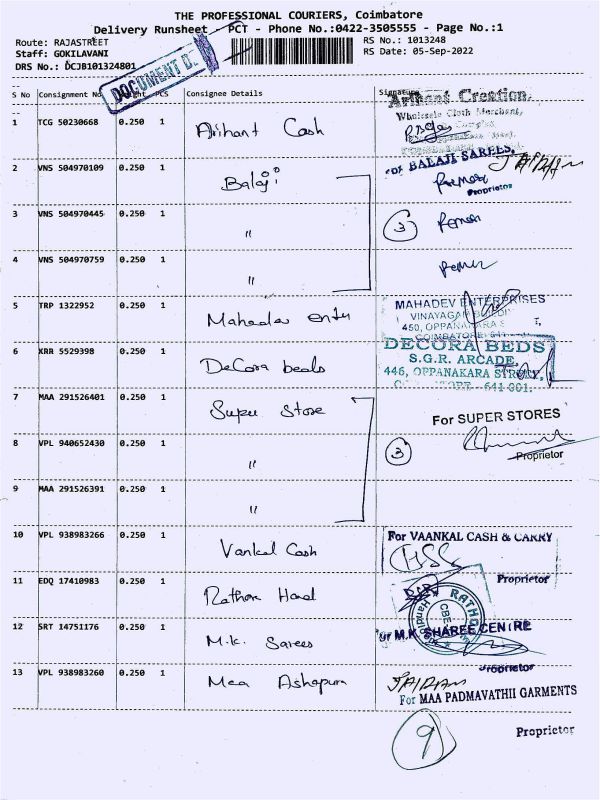 THE PROFESSIONAL COURIERS, Coimbatore
Delivery Runsheet PCT - Phone No.:0422-3505555 - Page No.:1
Route: RAJASTREET
RS No.: 1013248
Staff: GOKILAVANI
RS Date: 05-Sep-2022
DRS No.: DCJB101324801
DOCUMENT D.
S No Consignment No PCS Consignee Details Signature
1 TCG 50230668 0.250 1 Arihant Cash
Arihant Creation,
Wholesale Cloth Merchant,
2 VNS 504970109 0.250 1 Balaji
BALAJI SAREES,
Proprietor
3 VNS 504970445 0.250 1 " 3
4 VNS 504970759 0.250 1 "
5 TRP 1322952 0.250 1 Mahadev
MAHADEV ENTERPRISES
VINAYAGAR
450, OPPANAKARA
COIMBATORE
6 KRR 5529398 0.250 1 DeCora beds
DECORA BEDS
S.G.R. ARCADE,
446, OPPANAKARA STREET,
641 001.
7 MAA 291526401 0.250 1 Super Store
For SUPER STORES
Proprietor
8 VPL 940652430 0.250 1 " 3
9 MAA 291526391 0.250 1 "
10 VPL 938983266 0.250 1 Vankal Cash
For VAANKAL CASH & CARRY
Proprietor
11 EDQ 17410983 0.250 1 Rathore
RATHO
CBE
12 SRT 14751176 0.250 1 M.K. Sarees
M.K. SHAREE CENTRE
Proprietor
13 VPL 938983260 0.250 1 Maa Ashapura
JAIRAM
For MAA PADMAVATHII GARMENTS
9
Proprietor